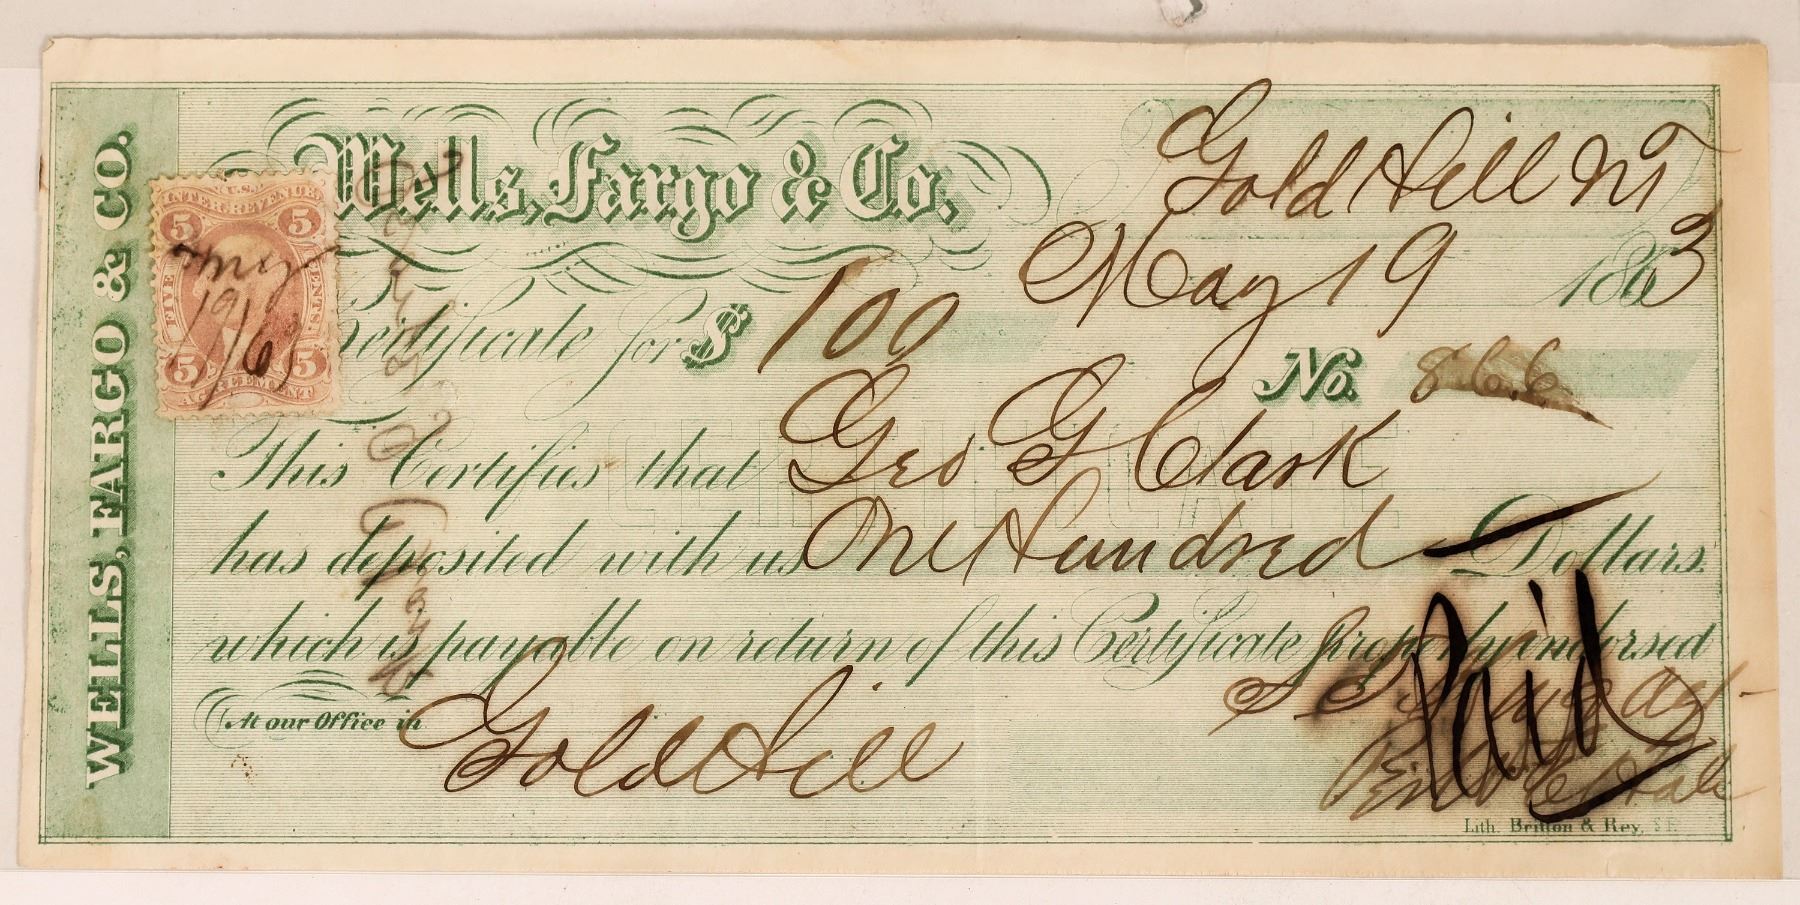 WELLS, FARGO & CO.
Wells, Fargo & Co.
Gold Hill NT
May 19 1863
U.S.
INTER. REVENUE
5 5
FIVE CENTS.
5 5
AGREEMENT
May
19/63
Certificate for $ 100
No. 866
CERTIFICATE
This Certifies that Geo G Clark
has deposited with us One Hundred Dollars.
which is payable on return of this Certificate properly indorsed
At our Office in Gold Hill
Agt
Paid
Lith. Britton & Rey, S.F.